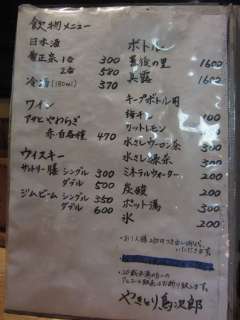 飲物メニュー
日本酒
菊正宗 1合 300
2合 580
冷酒 (180ml) 370
ワイン
アサヒ やわらぎ
赤・白各種 470
ウィスキー
サントリー膳 シングル 300
ダブル 500
ジムビーム シングル 350
ダブル 600
ボトル
豊後の里 1600
兵露 1600
キープボトル用
梅干 100
カットレモン 100
水さしウーロン茶 500
水さし緑茶 500
ミネラルウォーター 200
炭酸 200
ポット湯 500
氷 200
やきとり鳥次郎